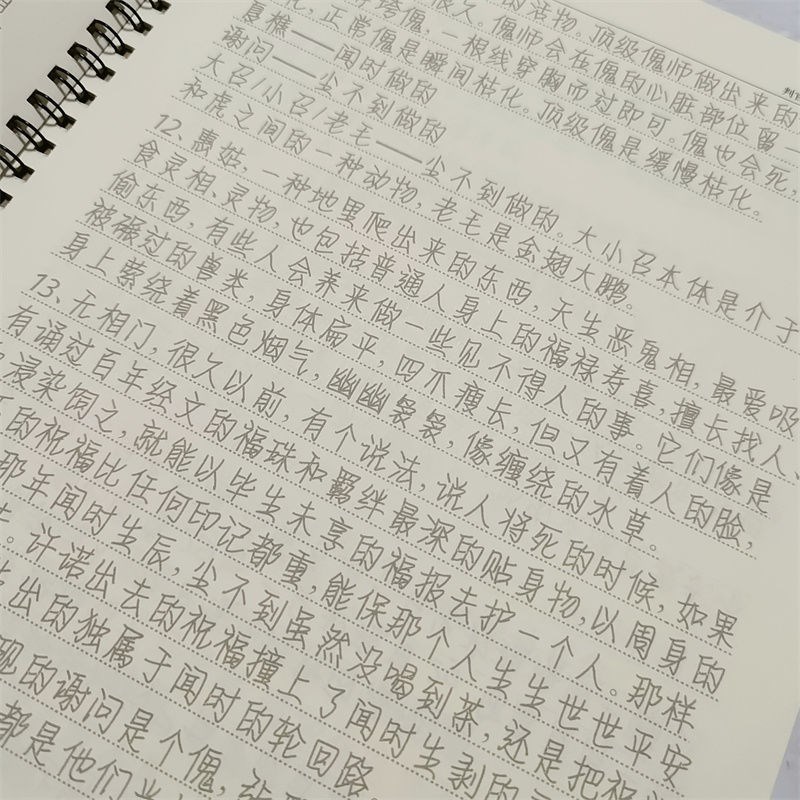 的活物。顶级傀师做出来的
很久。傀师会在傀的心脏部位留一
傀，一根线穿胸而过即可，傀也会死，
化，正常傀是瞬间枯化。顶级傀是缓慢枯化。
夏樵——闻时做的
谢问——尘不到做的
大召/小召/老毛——尘不到做的。大小召本体是介于
和虎之间的一种动物，老毛是金翅大鹏。
12、惠姑，一种地里爬出来的东西，天生恶鬼相，最爱吸
食灵相、灵物，也包括普通人身上的福禄寿喜，擅长找人、
偷东西，有些人会养来做一些见不得人的事。它们像是
被碾过的兽类，身体扁平，四爪瘦长，但又有着人的脸，
身上萦绕着黑色烟气，幽幽袅袅，像缠绕的水草。
13、无相门，很久以前，有个说法，说人将死的时候，如果
有诵过百年经文的福珠和羁绊最深的贴身物，以周身的
浸染图之，就能以毕生未享的福报去护一个人。那样
的祝福比任何印记都重，能保那个人生生世世平安
那年闻时生辰，尘不到虽然没喝到茶，还是把祝
。许诺出去的祝福撞上了闻时生剥的
出的独属于闻时的轮回路。
现的谢问是个傀，
都是他们